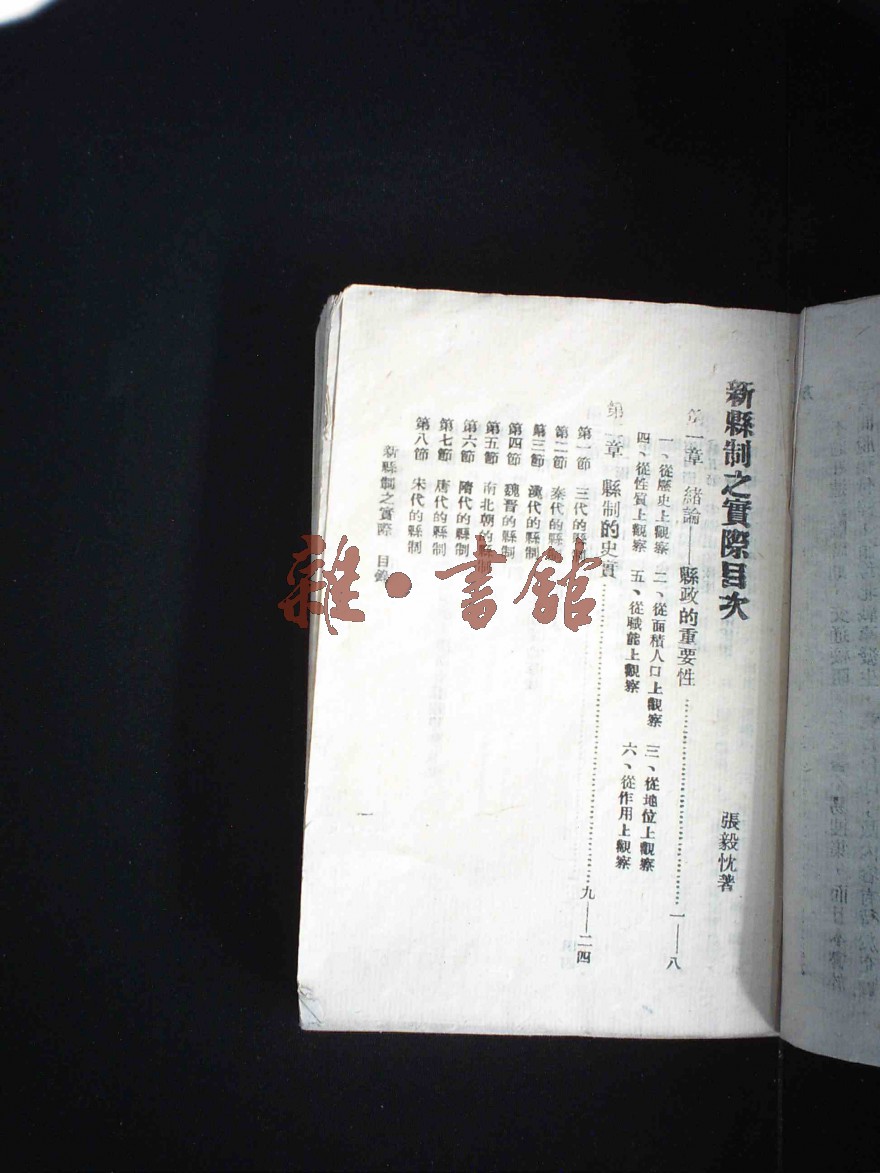 新縣制之實際目次
張毅忱著
第一章 緒論——縣政的重要性……一——八
一、從歷史上觀察 二、從面積人口上觀察 三、從地位上觀察
四、從性質上觀察 五、從職能上觀察 六、從作用上觀察
第二章 縣制的史實……九—二四
第一節 三代的縣制
第二節 秦代的縣制
第三節 漢代的縣制
第四節 魏晋的縣制
第五節 南北朝的縣制
第六節 隋代的縣制
第七節 唐代的縣制
第八節 宋代的縣制
新縣制之實際 目錄
一
雜·書館